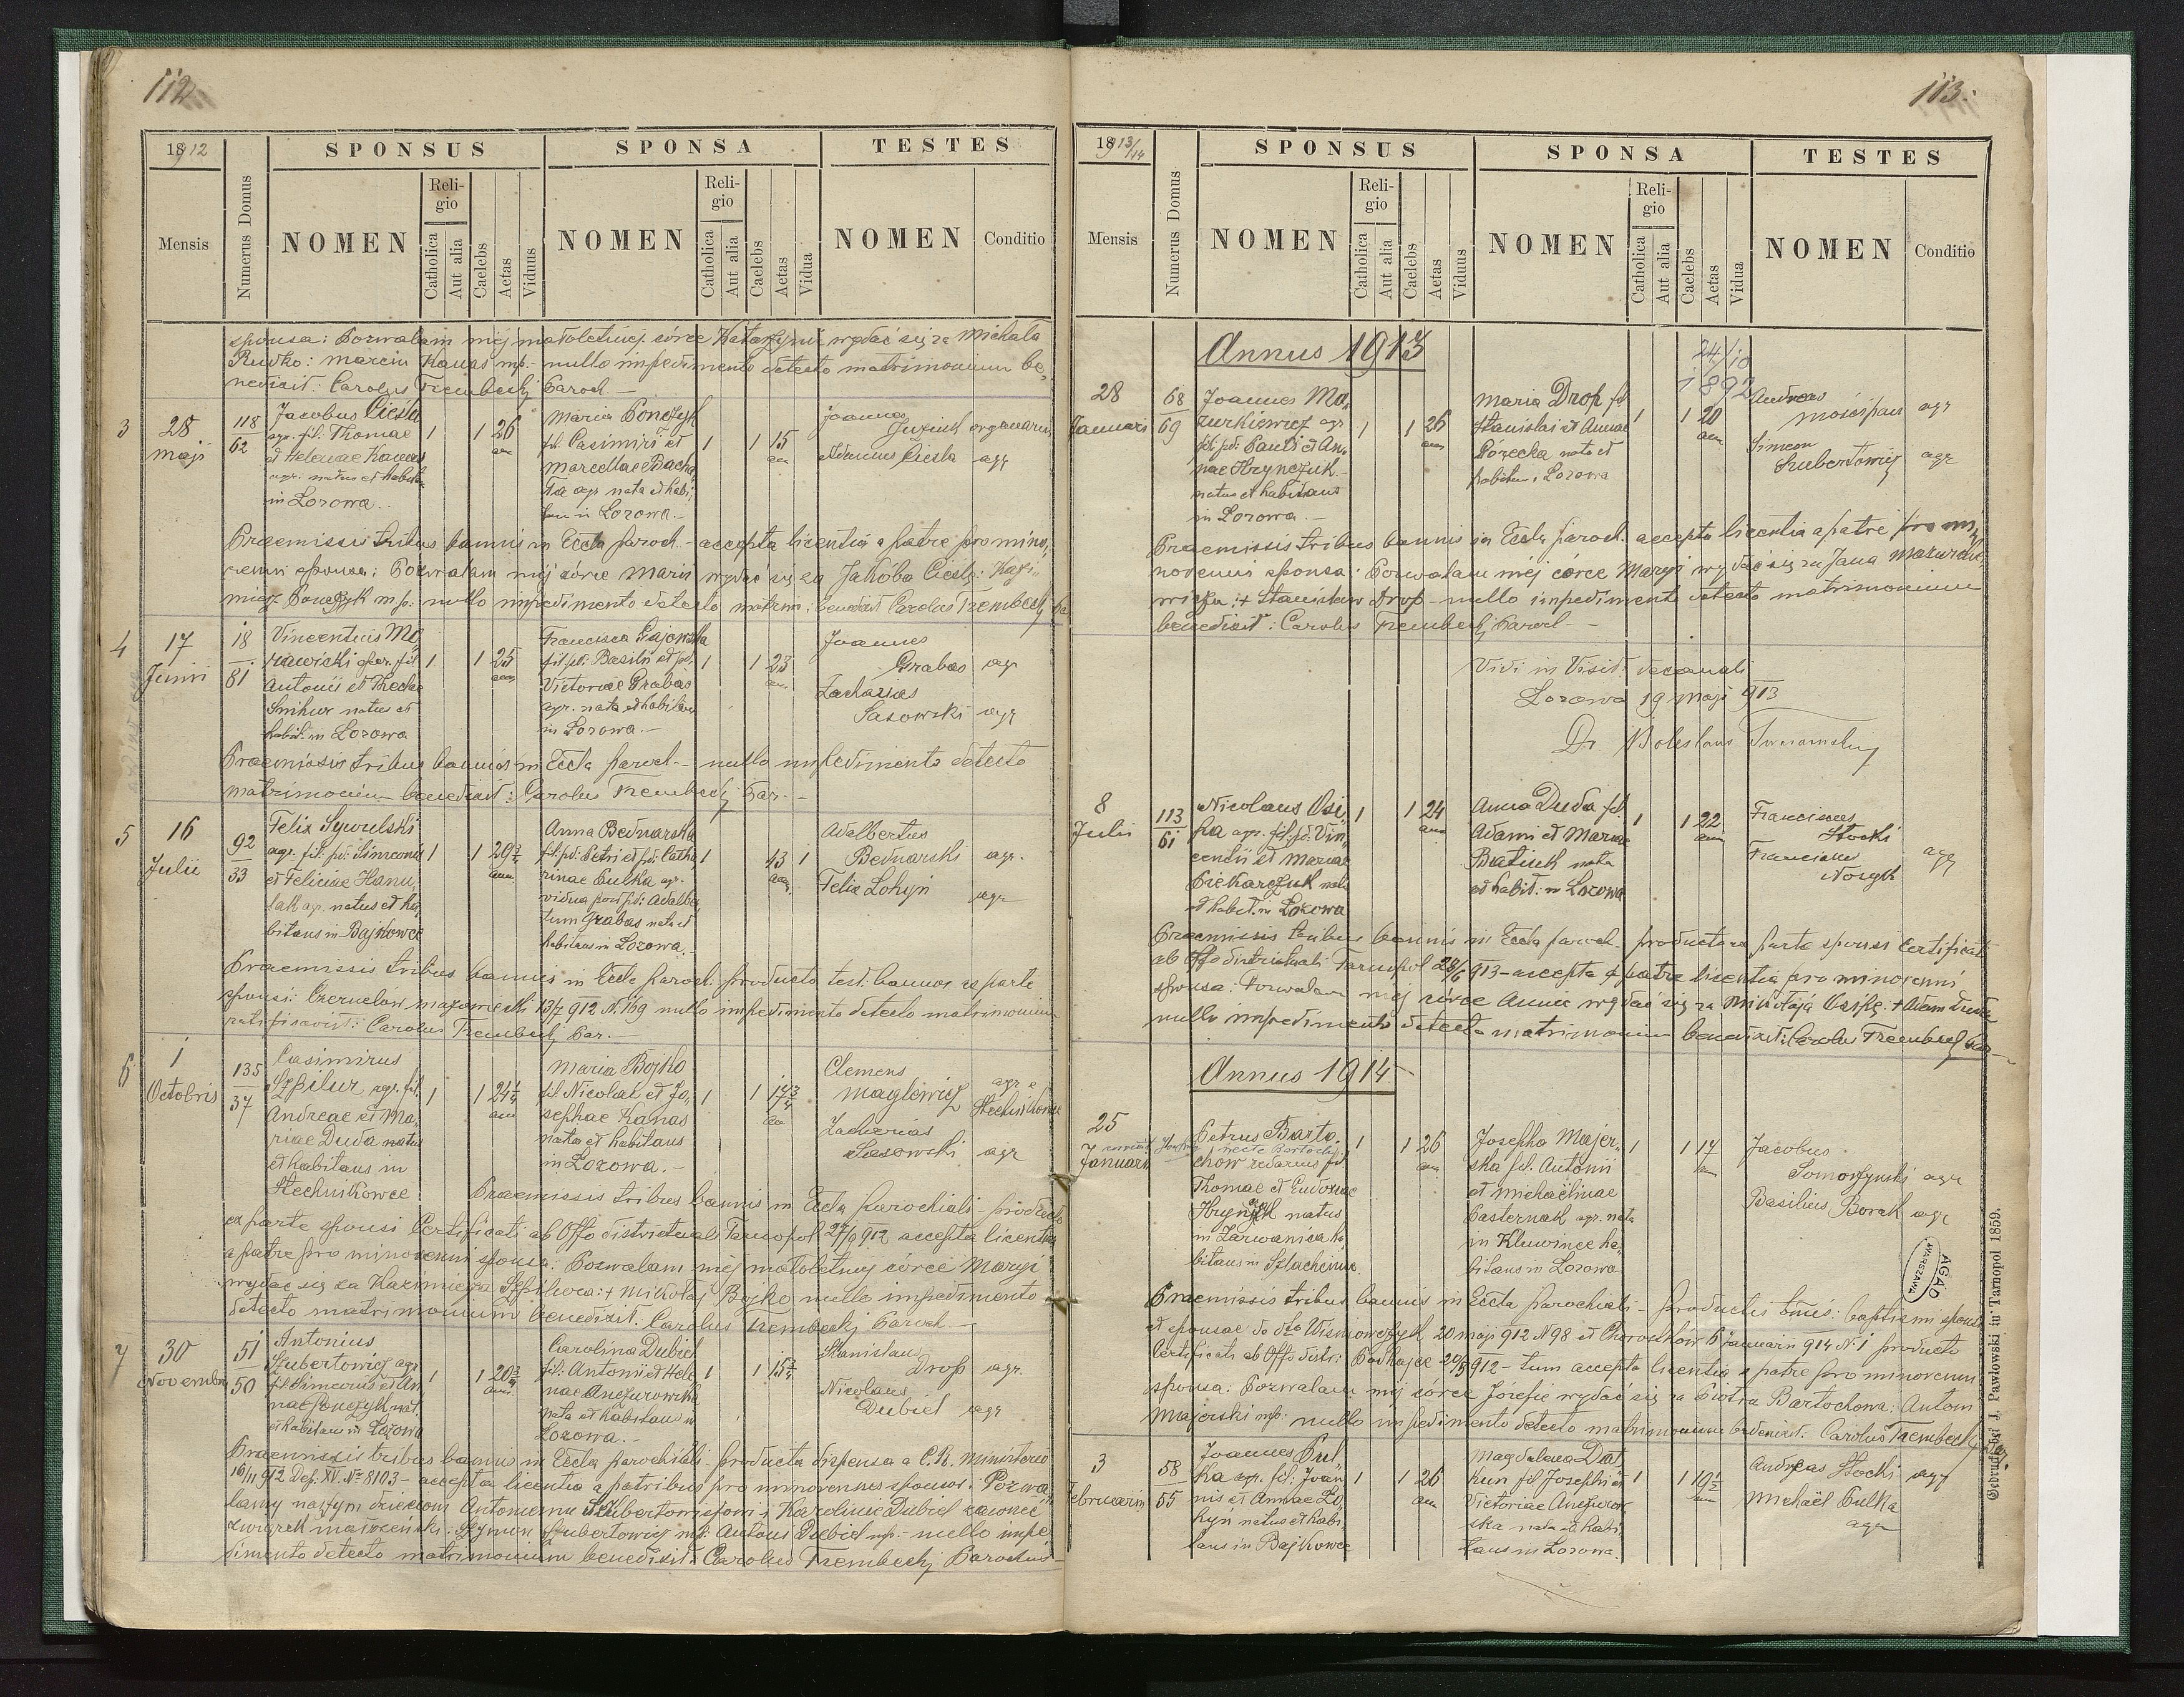 112
1912
SPONSUS
SPONSA
TESTES
Mensis
Numerus Domus
NOMEN
Religio
Catholica
Aut alia
Caelebs
Aetas
Viduus
NOMEN
Religio
Catholica
Aut alia
Caelebs
Aetas
Vidua
NOMEN
Conditio
sponsa: Pozwalam méj małoletniej córce Katarzynie wydać się za Michała
Rudko: Marcin Kanas mp.- nullo impedimento detecto matrimonium be-
nedixit: Carolus Trembecky Paroch.-
3
28
maji
118
62
Jacobus Ciesla
agr. fil. Thomae
et Helenae Kanas
agr. natus et habita
in Lozowa.
1
1
26
an
Maria Ponczyk
fil. Casimiri et
Marcellae Bacha
ta agr nata et habi
tans in Lozowa.-
1
1
15
an
Joannes
Juzink organarius
Adamus Ciesla agr
Praemissis tribus bannis in Eccla paroch.- accepta licentia a patre pro mino
renni sponsa: Pozwalam méj córce Marii wydać się za Jakóba Cieślę: Kazi
mierz Ponczyk mp: nullo impedimento detecto matrim: benedixit Carolus Trembecky Pa
4
17
Junii
18
81
Vincentius Mo
rawicki agr. fil
Antonii et Theclae
Snihur natus et
habit. in Lozowa
1
1
25
ann
Francisca Gajowska
fil. pd: Basilii et pd.
Victoriae Grabas
agr. nata et habitans
in Lozowa.-
1
1
23
an
Joannes
Grabas agr
Zacharias
Sasowski agr
Praemissis tribus bannis in Eccla paroch.- nullo impedimento detecto
matrimonium benedixit: Carolus Trembecky Par.-
5
16
Julii
92
33
Felix Sywulski
agr. fil. pd: Simeonis
et Feliciae Hanu
lak agr. natus et ha
bitans in Bajkowce
1
1
29 3/4
ann
Anna Bednarska
fil. pd. Petri et pd: Catha
rinae Culka agr.
vidua post pd: Adalber
tum Grabas nata et
habitans in Lozowa.
1
43
an
1
Adalbertus
Bednarski agr.
Felix Lohyn agr
Praemissis tribus bannis in Eccla paroch: producto test: bannor ex parte
sponsi: Czernelów mazowiecki 13/7 912 N. 169 nullo impedimento detecto matrimonium
ratificavit: Carolus Trembecky Par.-
6
1
Octobris
135
37
Casimirus
Szpilur agr. fil.
Andreae et Ma-
riae Duda natus
et habitans in
Stechnikowce
1
1
24 1/4
ann
Maria Bojko
fil Nicolai et Jo-
sephae Kanas
nata et habitans
in Lozowa.-
1
1
17 3/4
an
Clemens
Maglewicz agr e
Stechnikowce
Zacharias
Sasowski agr
Praemissis tribus bannis in Eccla parochiali - producto
ex parte sponsi Certificati ab Offo districtuali Tarnopol 27/9 912 accepta licentia
a patre pro minorenni sponsa: Pozwalam méj małoletniej córce Maryi
wydać się za Kazimierza Szpilura: + Mikołaj Bojko nullo impedimento
detecto matrimonium benedixit. Carolus Trembecky Paroch.-
7
30
Novembris
51
50
Antonius
Szubertowicz agr
fil Simeonis et An
nae Ponczyk nat.
et habitans in Lozowa
1
1
20 3/4
ann
Carolina Dubiel
fil. Antonii et Hele
nae Anczurowska
nata et habitans in
Lozowa.-
1
1
15 3/4
Stanislaus
Drop agr.
Nicolaus
Dubiel agr
Praemissis tribus bannis in Eccla parochiali - producta dispensa a C.R. Ministerio
16/11 912 Dep. XV. No 8103 - accepta licentia a patribus pro minorennes sponsos: Pozwa-
lamy naszym dzieciom Antoniemu Szubertowiczowi i Karolinie Dubiel zawrzeć
związek małżeński: Szymon Szubertowicz mp: Antoni Dubiel mp.- nullo impe
dimento detecto matrimonium benedixit: Carolus Trembecky Parochus
113.
1913/14
SPONSUS
SPONSA
TESTES
Mensis
Numerus Domus
NOMEN
Religio
Catholica
Aut alia
Caelebs
Aetas
Viduus
NOMEN
Religio
Catholica
Aut alia
Caelebs
Aetas
Vidua
NOMEN
Conditio
Annus 1913
24/10
1892
28
Januari
68
69
Joannes Ma
zurkiewicz agr
fil. pd: Pauli et An
nae Hrynczuk.-
natus et habitans
in Lozowa.-
1
1
26
ann
Maria Drop fil
Stanislai et Annae
Górecka nata et
habitans Lozowa
1
1
20
an
Andreas
agr
Simeon
Szubertowicz agr
Praemissis tribus bannis in Eccla paroch. accepta licentia a patre pro mi
norenni sponsa: Pozwalam méj córce Maryi wydać się za Jana Mazurkie
wicza: + Stanisław Drop - nullo impedimento detecto matrimonium
benedixit: Carolus Trembecky Paroch.-
Vidi in Visit. decanali
Lozowa 19 Maji 913
Dr Boleslaus
8
Julii
113
61
Nicolaus Osi
ka agr. fil: pd. Vin
centii et Mariae
Piekarczuk natus
et habit. in Lozowa
1
1
24
ann
Anna Duda fil.
Adami et Mariae
Bratiuk nata
et habit: in Lozowa
1
1
22
an
Franciscus
Stocki
Franciscus
Nosyk
agr
Praemissis tribus bannis in Eccla paroch. producto a parte sponsi Certificati
ab Offo districtuali Tarnopol 28/6 913 - accepta a patre licentia pro minorenni
sponsa: Pozwalam méj córce Annie wydać się za Mikołaja Osikę: + Adam Duda
nullo impedimento detecto matrimonium benedixit: Carolus Trembecky Par-
Annus 1914.
25
Januarii
Petrus Barto
chow redarius fil
Thomae et Eudoxiae
natus
in Zarwanica ha
bitans in Szlachcince
1
1
26
an
Josepha Majer
ska fil. Antonii
et Michaëlinae
Pasternak agr. nata
in Kluwince ha
bitans in Lozowa
1
1
17
an
Jacobus
Somoszynski agr
Basilius Borak agr
AGAD
WARSZAWA
Praemissis tribus bannis in Eccla parochiali - productis test: baptismi sponsi
et sponsae do dto Wisniowczyk 20 maji 912 N 98 et Chorostków 6 Januarii 914 N. 1 producto
Certificati ab Offo distri: Podhajce 20/5 912 - tum accepta licentia a patre pro minorenni
sponsa: Pozwalam méj córce Józefie wydać się za Piotra Bartochowa: Antoni
Majerski mp: nullo impedimento detecto matrimonium benedixit: Carolus Trembecky
3
Februarii
58
55
Joannes Cul
ka agr. fil: Joan
nis et Annae Lo
hyn natus et habi
tans in Bajkowce
1
1
26
an
Magdalena Dat
kun fil Josephi et
Victoriae Anczurow
ska nata et habi
tans in Lozowa.
1
1
19 1/2
Andreas Stocki agr
Michaël Culka
agr
Gedruckt bei J. Pawłowski in Tarnopol 1859.